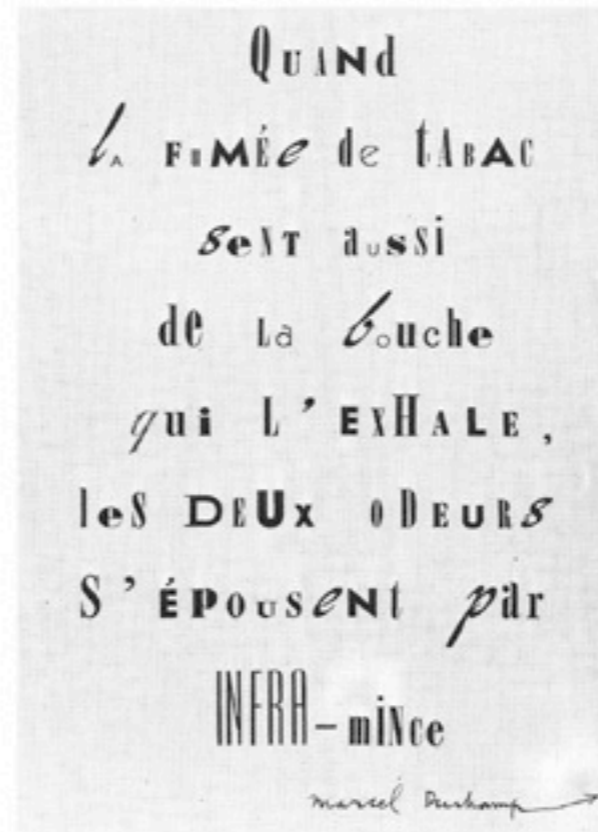 QuANd
lA FuMÉe de tABAC
seNT aussi
de La bouche
qui L'EXHALE,
leS DEUx oDEURs
S'ÉPousENt par
INFRA-miNce
Marcel Duchamp